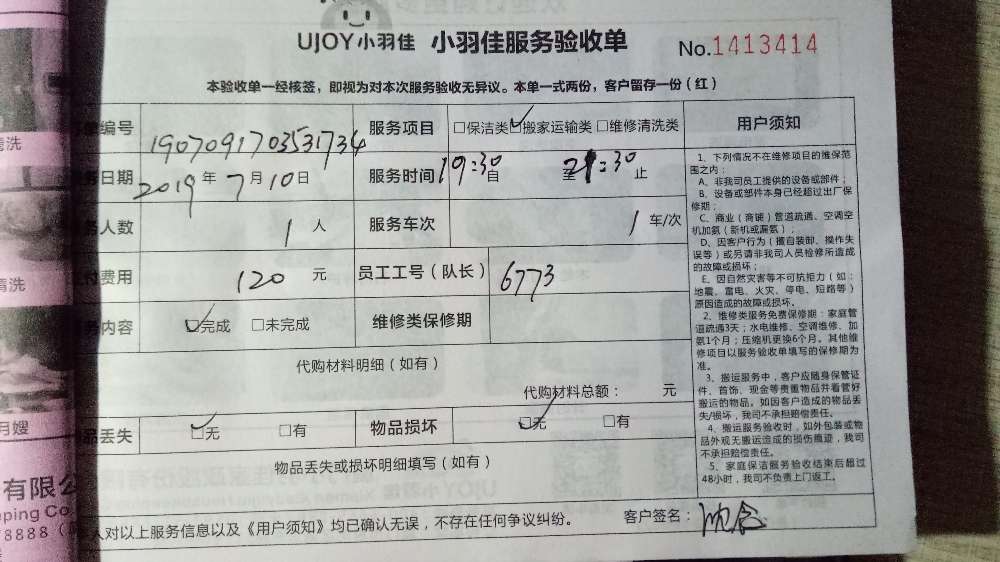 UJOY小羽佳 小羽佳服务验收单 No.1413414
本验收单一经核签，即视为对本次服务验收无异议。本单一式两份，客户留存一份（红）
编号 1907091703531734 服务项目 □保洁类 ☑搬家运输类 □维修清洗类
日期 2019年7月10日 服务时间 19:30自 至21:30止
人数 1人 服务车次 1车/次
付费用 120元 员工工号（队长） 6773
内容 ☑完成 □未完成 维修类保修期
代购材料明细（如有）
代购材料总额： 元
品丢失 ☑无 □有 物品损坏 ☑无 □有
物品丢失或损坏明细填写（如有）
人对以上服务信息以及《用户须知》均已确认无误，不存在任何争议纠纷。 客户签名：
用户须知
1、下列情况不在维修项目的维保范
围之内：
A、非我司员工提供的设备或部件；
B、设备或部件本身已经超过出厂保
修期；
C、商业（商铺）管道疏通、空调空
机加氨（新机或漏氨）；
D、因客户行为（擅自装卸、操作失
误等）或另请非我司人员检修所造成
的故障或损坏；
E、因自然灾害等不可抗拒力（如：
地震、雷电、火灾、停电、短路等）
原因造成的故障或损坏。
2、维修类服务免费保修期：家庭管
道疏通3天；水电维修、空调维修、加
氨1个月；压缩机更换6个月。其他维
修项目以服务验收单填写的保修期为
准。
3、搬运服务中，客户应随身保管证
件、首饰、现金等贵重物品并看管好
搬运的物品。如因客户造成的物品丢
失/损坏，我司不承担赔偿责任。
4、搬运服务验收时，如外包装或物
品外观无搬运造成的损伤痕迹，我司
不承担赔偿责任。
5、家庭保洁服务验收结束后超过
48小时，我司不负责上门返工。
清洗
清洗
月嫂
有限公
ping Co.
8888